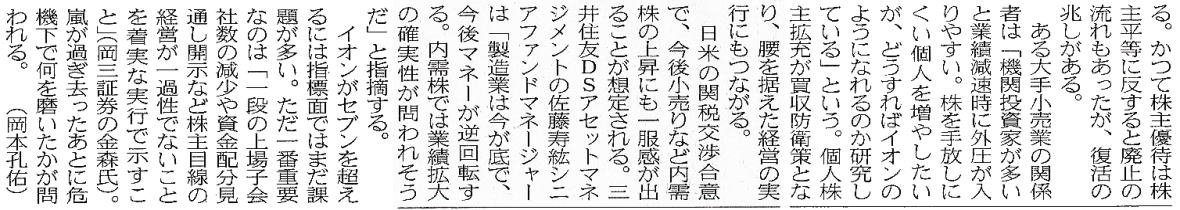 る。かつて株主優待は株
主平等に反すると廃止の
流れもあったが、復活の
兆しがある。
　ある大手小売業の関係
者は「機関投資家が多い
と業績減速時に外圧が入
りやすい。株を手放しに
くい個人を増やしたい
が、どうすればイオンの
ようになれるのか研究し
ている」という。個人株
主拡充が買収防衛策とな
り、腰を据えた経営の実
行にもつながる。
　日米の関税交渉合意
で、今後小売りなど内需
株の上昇にも一服感が出
ることが想定される。三
井住友DSアセットマネ
ジメントの佐藤寿紘シニ
アファンドマネージャー
は「製造業は今が底で、
今後マネーが逆回転す
る。内需株では業績拡大
の確実性が問われそう
だ」と指摘する。
　イオンがセブンを超え
るには指標面ではまだ課
題が多い。ただ一番重要
なのは「一段の上場子会
社数の減少や資金配分見
通し開示など株主目線の
経営が一過性でないこと
を着実な実行で示すこ
と」（岡三証券の金森氏）。
嵐が過ぎ去ったあとに危
機下で何を磨いたかが問
われる。　（岡本孔佑）